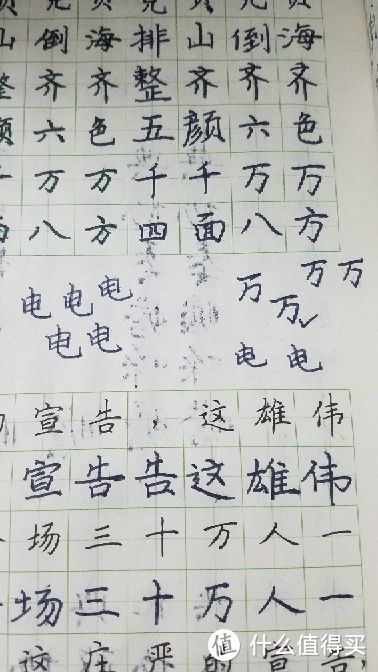 山倒海排山倒海
齐齐整齐齐齐
六色五颜六色
万万千千万万
八方四面八方
电电电
电电
万万
万万
电电
宣告，这雄伟
宣告告这雄伟
场三十万人一
场三十万人一
这庄严的
值 什么值得买